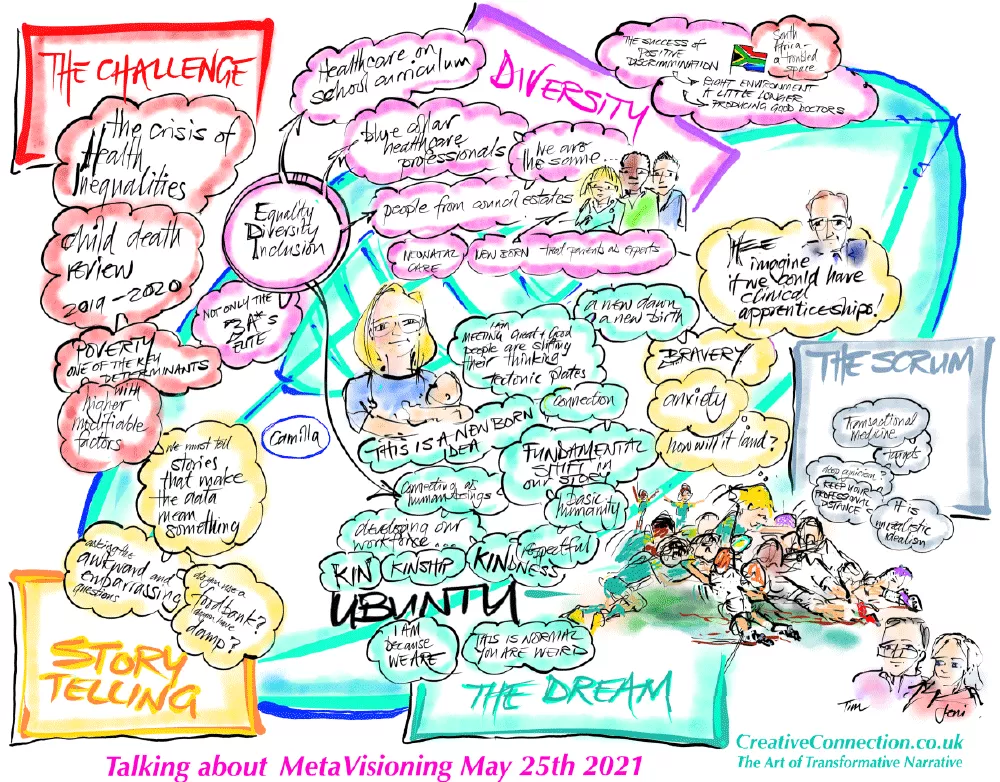 THE CHALLENGE
the crisis of
Health
Inequalities
child death
review
2019-2020
POVERTY
ONE OF THE KEY
DETERMINANTS
with
higher
modifiable
factors
Healthcare on
school curriculum
blue collar
healthcare
professionals
we are
the same...
people from council estates
NEONATAL
CARE
NEW BORN
treat parents as experts
Equality
Diversity
Inclusion
NOT ONLY THE
BA*S
ELITE
DIVERSITY
THE SUCCESS OF
POSITIVE
DISCRIMINATION
South
Africa -
a troubled
space
RIGHT ENVIRONMENT
A LITTLE LONGER
PRODUCING GOOD DOCTORS
imagine
if we could have
clinical
apprenticeships!
a new dawn
a new birth
I AM
MEETING Great + Good
people are shifting
their thinking
tectonic plates
connection
BRAVERY
anxiety
how will it land?
THE SCRUM
Transactional
medicine
targets
KEEP YOUR
PROFESSIONAL
DISTANCE
it is
idealism
Camilla
THIS IS A NEW BORN
IDEA
FUNDAMENTAL
SHIFT in
our STORY
connecting as
human beings
basic
humanity
developing our
workforce...
respectful
KIN
KINSHIP
KINDNESS
UBUNTU
I AM
because
WE ARE
THIS IS NORMAL
YOU ARE WEIRD
we must tell
stories
that make
the data
mean
something
asking the
awkward and
embarrassing
questions
do you use a
foodbank?
damp?
STORY
TELLING
THE DREAM
Tim
Jeni
Talking about MetaVisioning May 25th 2021
CreativeConnection.co.uk
The Art of Transformative Narrative